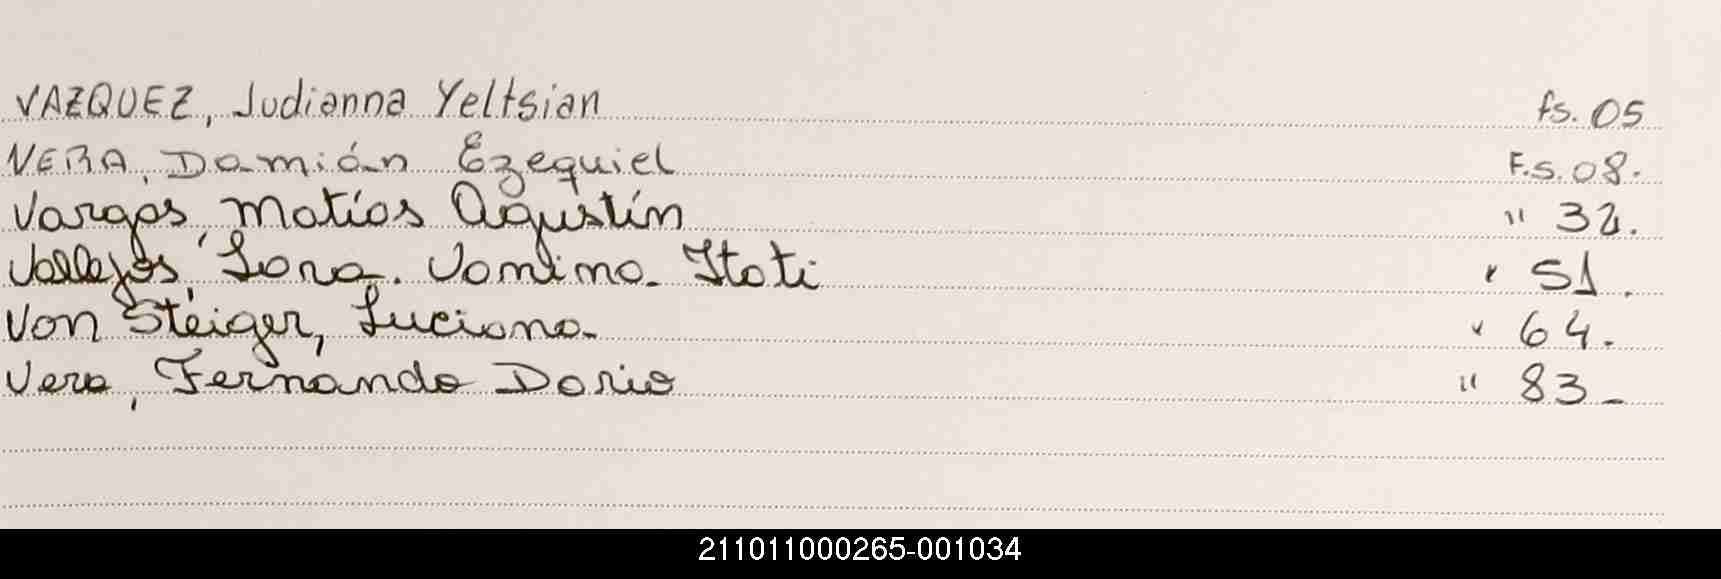 VAZQUEZ, Judianna Yeltsian fs. 05
VERA, Damián Ezequiel F.s. 08.
Vargas, Matías Agustín " 32.
Vallejos, Sara. Yamima. Itati " 51.
Von Steiger, Luciana. " 64.
Vera, Fernando Dario " 83_
211011000265-001034